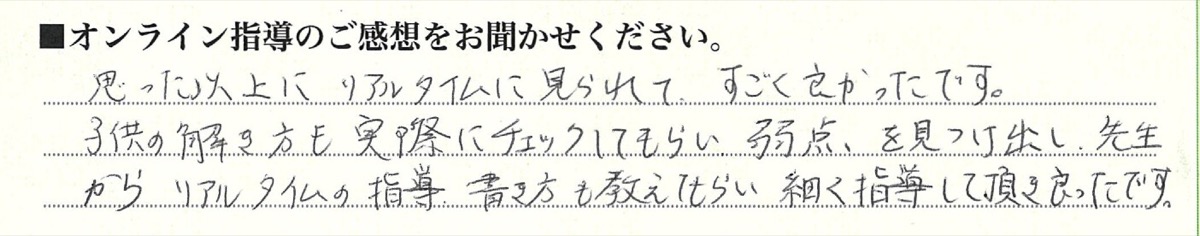 ■オンライン指導のご感想をお聞かせください。
思った以上にリアルタイムに見られて、すごく良かったです。
子供の解き方も実際にチェックしてもらい弱点、を見つけ出し、先生
からリアルタイムの指導、書き方も教えてもらい細く指導して頂き良ったです。